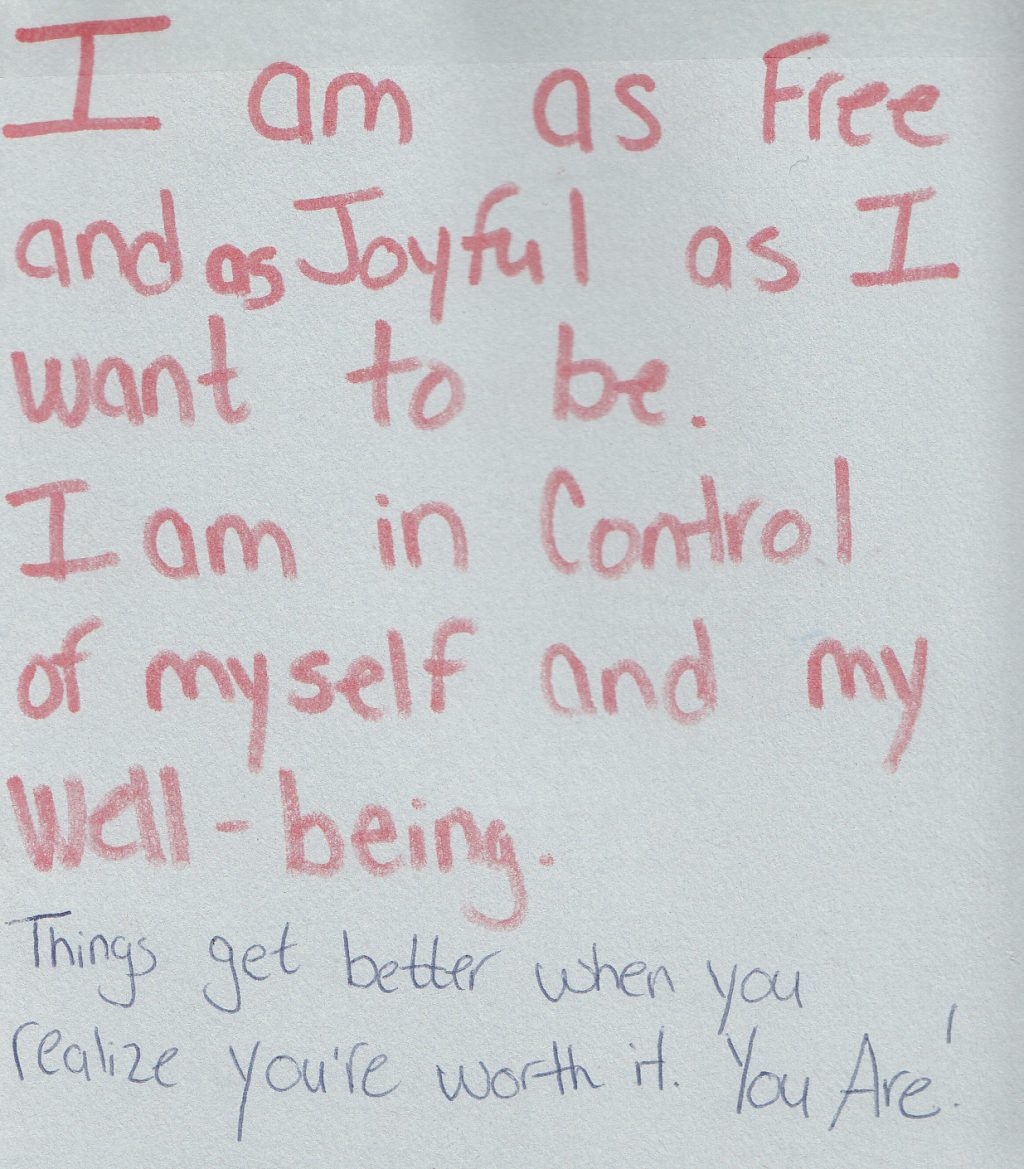 I am as Free
and as Joyful as I
want to be.
I am in Control
of myself and my
Well-being.
Things get better when you
realize you're worth it. You Are!